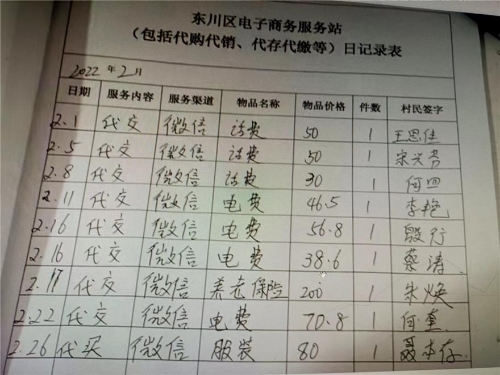 东川区电子商务服务站
（包括代购代销、代存代缴等）日记录表
2022年2月
日期 服务内容 服务渠道 物品名称 物品价格 件数 村民签字
2.1 代交 微信 话费 50 1 王思佳
2.5 代交 微信 话费 50 1
2.8 代交 微信 话费 30 1 何四
2.11 代交 微信 电费 46.5 1 李艳
2.16 代交 微信 电费 56.8 1 殷行
2.16 代交 微信 电费 38.6 1 蔡清
2.17 代交 微信 养老保险 200 1 朱焕
2.22 代交 微信 电费 70.8 1 何奎
2.26 代买 微信 服装 80 1 聂本存